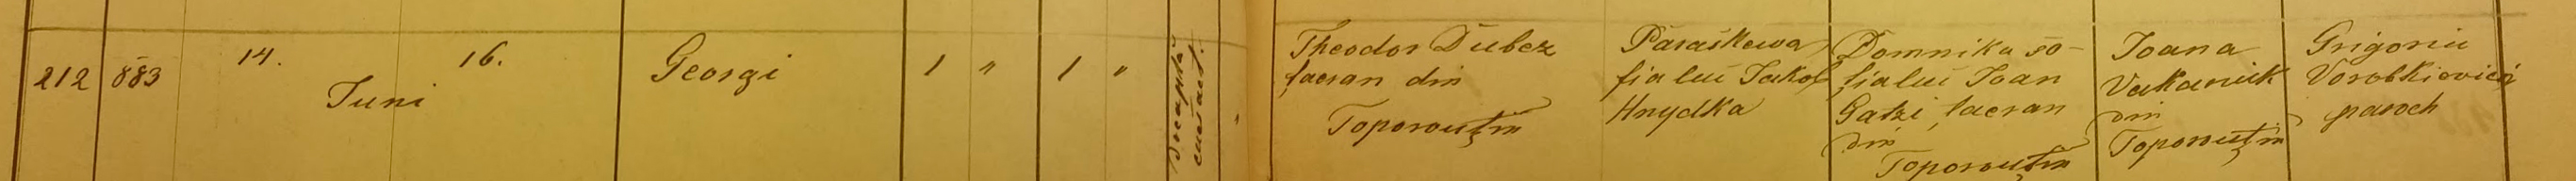 212
883
14.
16.
Juni
Georgi
1 " 1 "
Dreaptă
Theodor Dubez
ţăeran din
Toporoutz
Paraskewa
fia lui Jakob
Hnydka
Domnika so-
ţia lui Ioan
Gatzi, ţaeran
din
Toporoutz
Ioana
Vakaniuk
din
Toporoutz
Grigoriu
Vorobkiovici
paroch